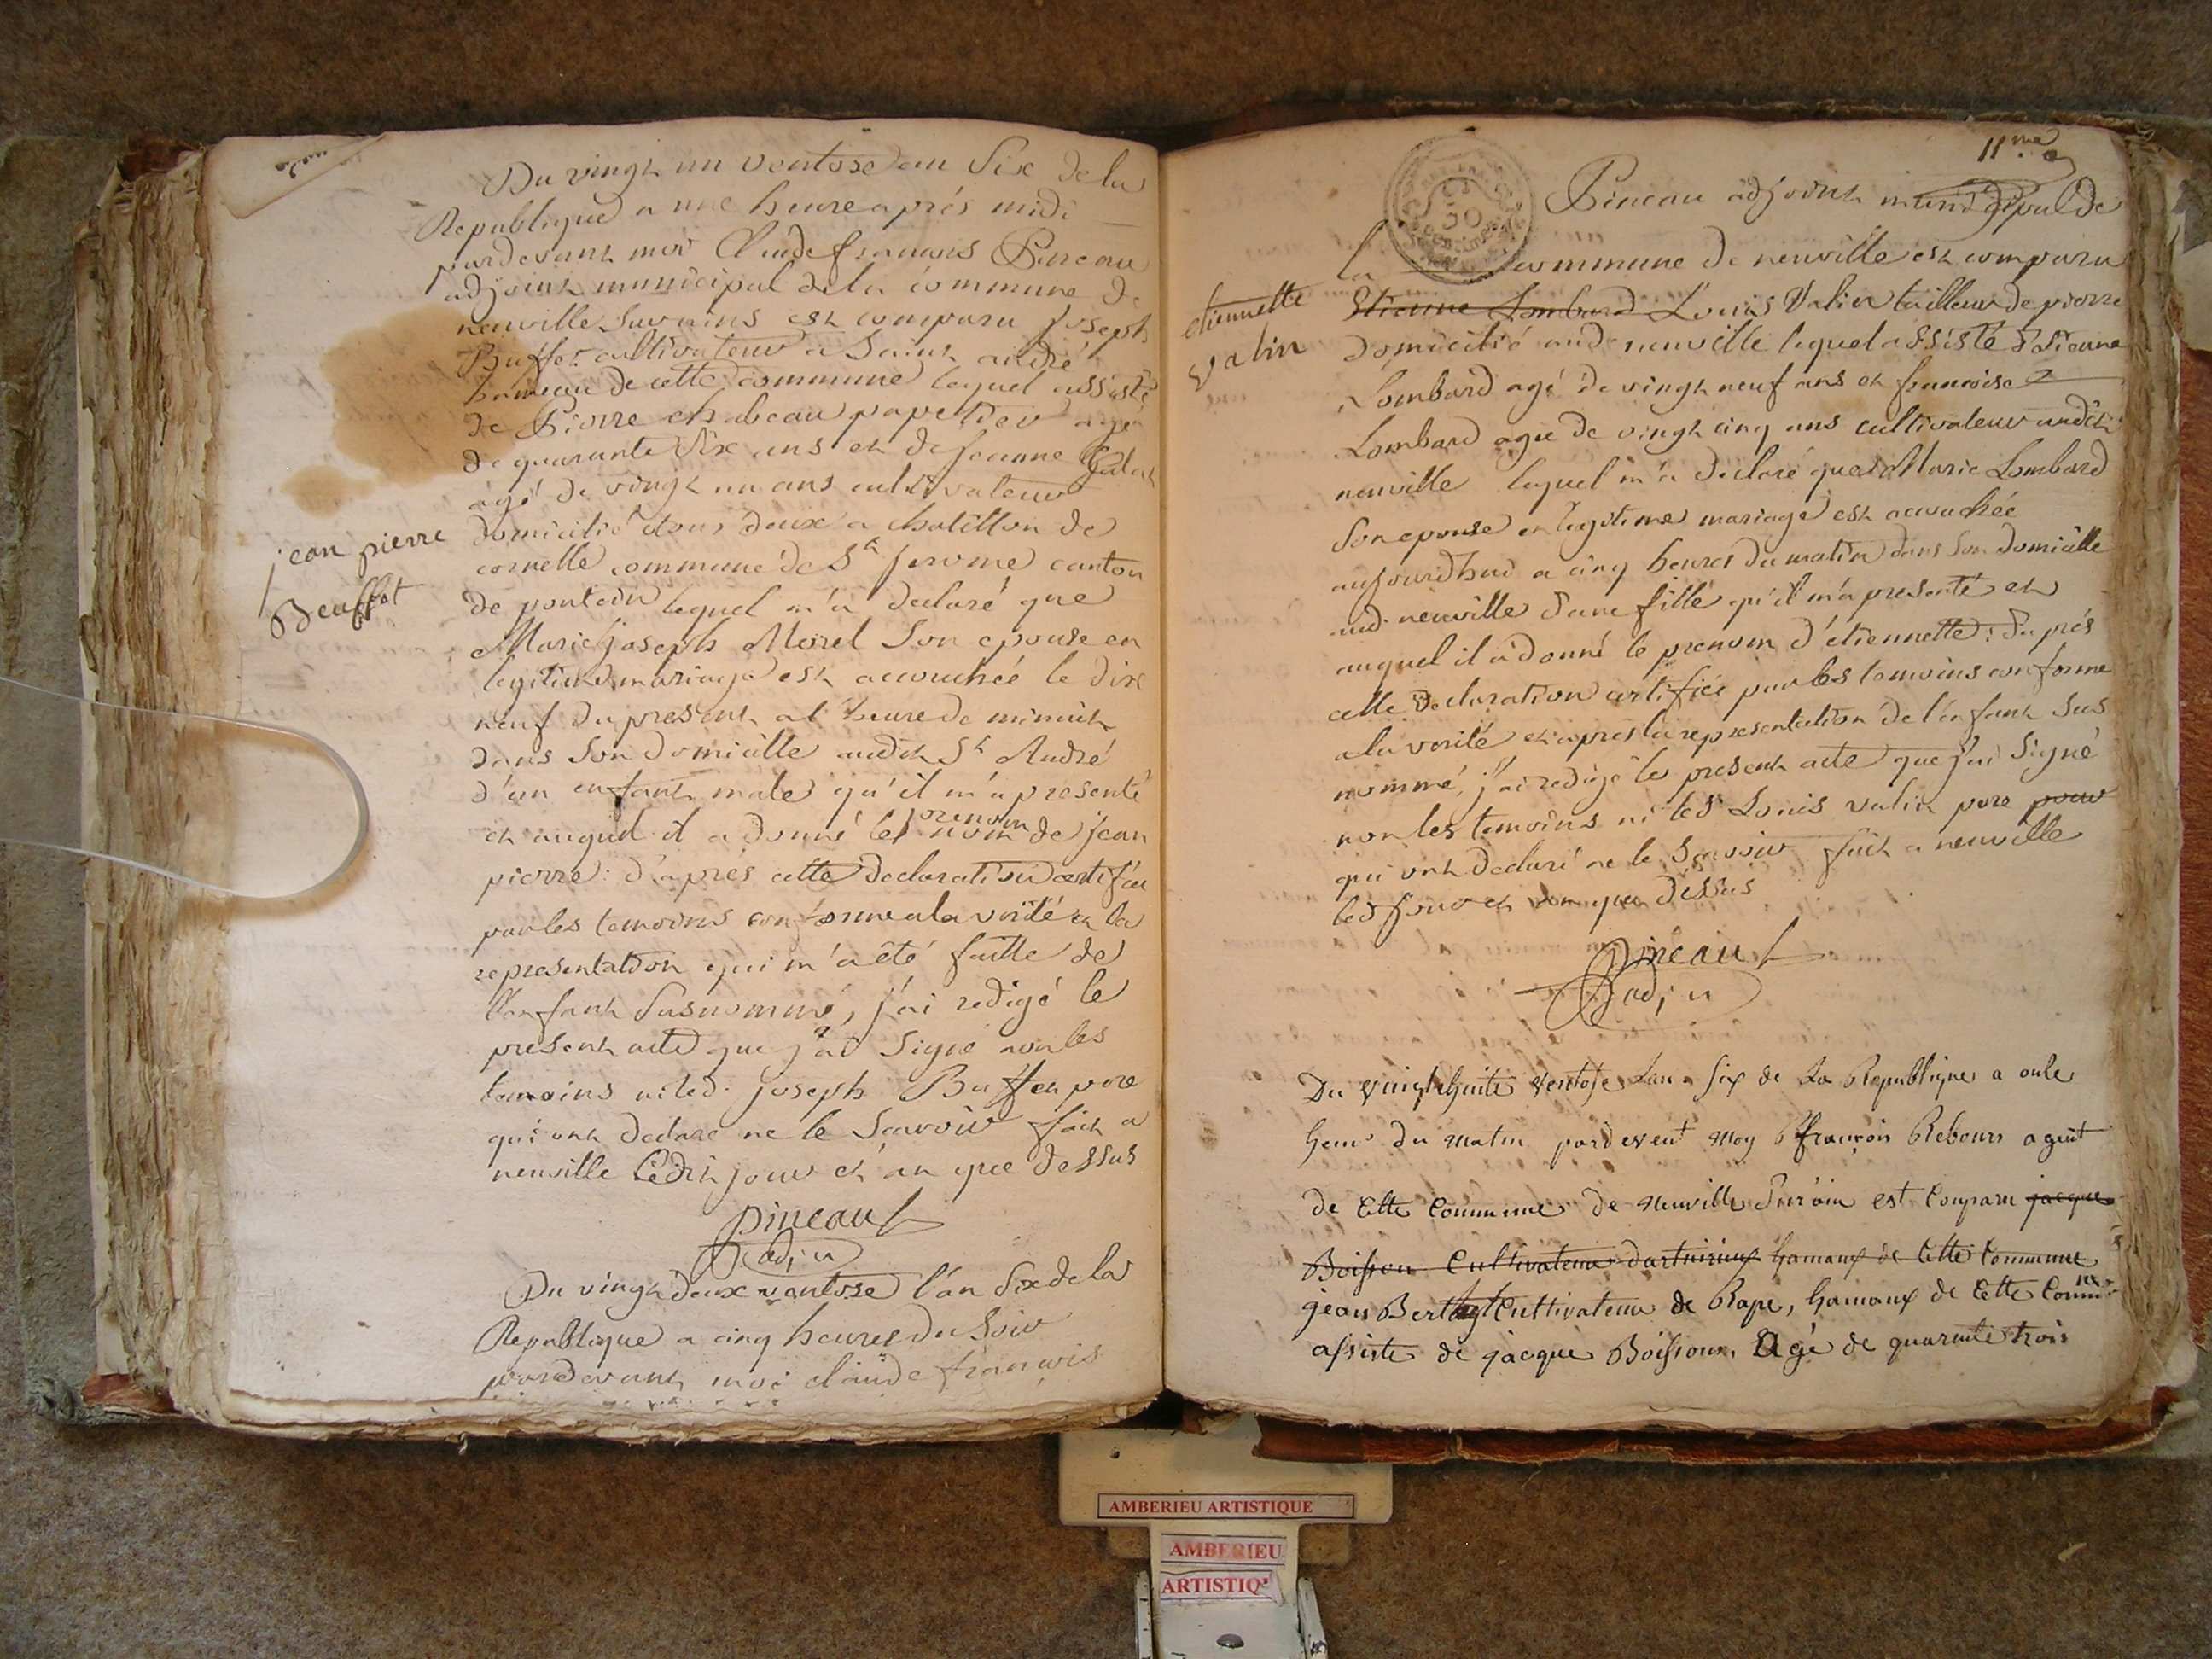 Du vingt un ventose an Six de la
Republique a une heure aprés midi
pardevant moi Claude francois Pineau
adjoint municipal de la commune de
neuville Sur ains est comparu joseph
Buffet cultivateur a Saint andré
hameau de cette commune lequel assisté
de Pierre chabeau papetier agé
de quarante Six ans et de jeanne
agé de vingt un ans cultivateur
domicilié tous deux a chatillon de
cornelle commune de St jerome canton
de pontein lequel m'a declaré que
Marie joseph Morel Son epouse en
legitime mariage est accouchée le dix
neuf du present a l'heure de minuit
dans Son domicille audit St André
d'un enfant male qu'il m'a presenté
et auquel il a donné les prenom nom de jean
pierre: d'aprés cette declaration certifiée
par les temoins conforme a la verité et la
representation qui m'a été faitte de
l'enfant Susnommé, j'ai redigé le
present acte que j'ai Signé non les
temoins ni led. joseph Buffet pere
qui ont declaré ne le Scavoir fait a
neuville ledit jour et an que dessus
pineau
adj
jean pierre
Beuffet
Du vingt deux ventose l'an Six de la
Republique a cinq heures du Soir
pardevant moi claude francois
11me
Pineau adjoint municipal de
la commune de neuville est comparu
Etienne Lombard Louis Valin tailleur de pierre
domicilié aud. neuville lequel assisté d'Etienne
Lombard agé de vingt neuf ans et francoise
Lombard agée de vingt cinq ans cultivateur audit
neuville lequel m'a declaré que Marie Lombard
Son epouse en legitime mariage est accouchée
aujourdhui a cinq heures du matin dans Son domicille
aud. neuville d'une fille qu'il m'a presenté et
auquel il a donné le prenom d'etiennette: d'aprés
cette declaration certifiée par les temoins conforme
a la verité et apres la representation de l'enfant Sus
nommé, j'ai redigé le present acte que j'ai Signé
non les temoins ni led. Louis valin pere pour
qui ont declaré ne le Scavoir fait a neuville
led jour et an que dessus
pineau
adj
etiennette
valin
Du vingtehuite ventose Lan Six de La Republique a onle
heur du matin pardevent moy francois Rebours agent
de Cette Commune de Neuville Sur ain est Comparu jacque
Boisson Cultivateur hamaux de Cette Commune
jean Cultivateur de Rape, hamaux de Cette Comm ne
assiste de jacque Boisson, Agé de quarante trois
AMBERIEU ARTISTIQUE
AMBERIEU
ARTISTIQ